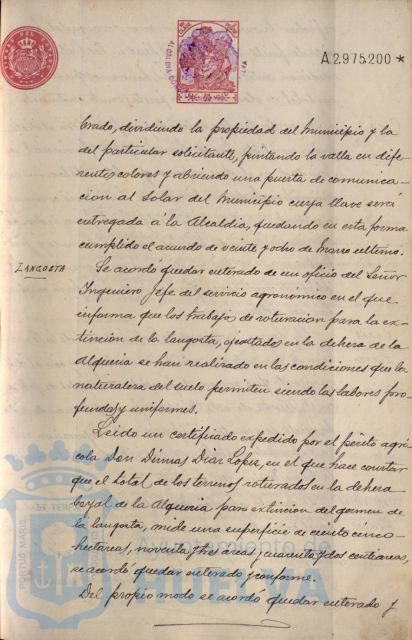 A2975200*
brado, dividiendo la propiedad del Municipio y la
del particular solicitante, pintando la valla en dife-
rentes colores y abriendo una puerta de comunica-
cion al solar del Municipio cuya llave será
entregada á la Alcaldia, quedando en esta forma
cumplido el acuerdo de veinte y ocho de Marzo ultimo.
LANGOSTA
Se acordó quedar enterado de un oficio del Señor
Ingeniero Jefe del servicio agronómico en el que
informa que los trabajos de roturacion para la ex-
tincion de la langosta, ejecutados en la dehesa de la
Alqueria se han realizado en las condiciones que la
naturaleza del suelo permiten siendo las labores pro-
fundas y uniformes.
Leido un certificado expedido por el périto agrí-
cola Don Dimas Diaz Lopez, en el que hace constar
que el total de los terrenos roturados en la dehesa
boyal de la Alqueria para extincion del germen de
la langosta, mide una superficie de ciento cinco
hectareas, noventa y tres areas y cuarenta y dos centiareas,
se acordó quedar enterado y conforme.
Del propio modo se acordó quedar enterado y
PORTUS MARIS
ET TERR
Ayuntamiento de
HUELVA